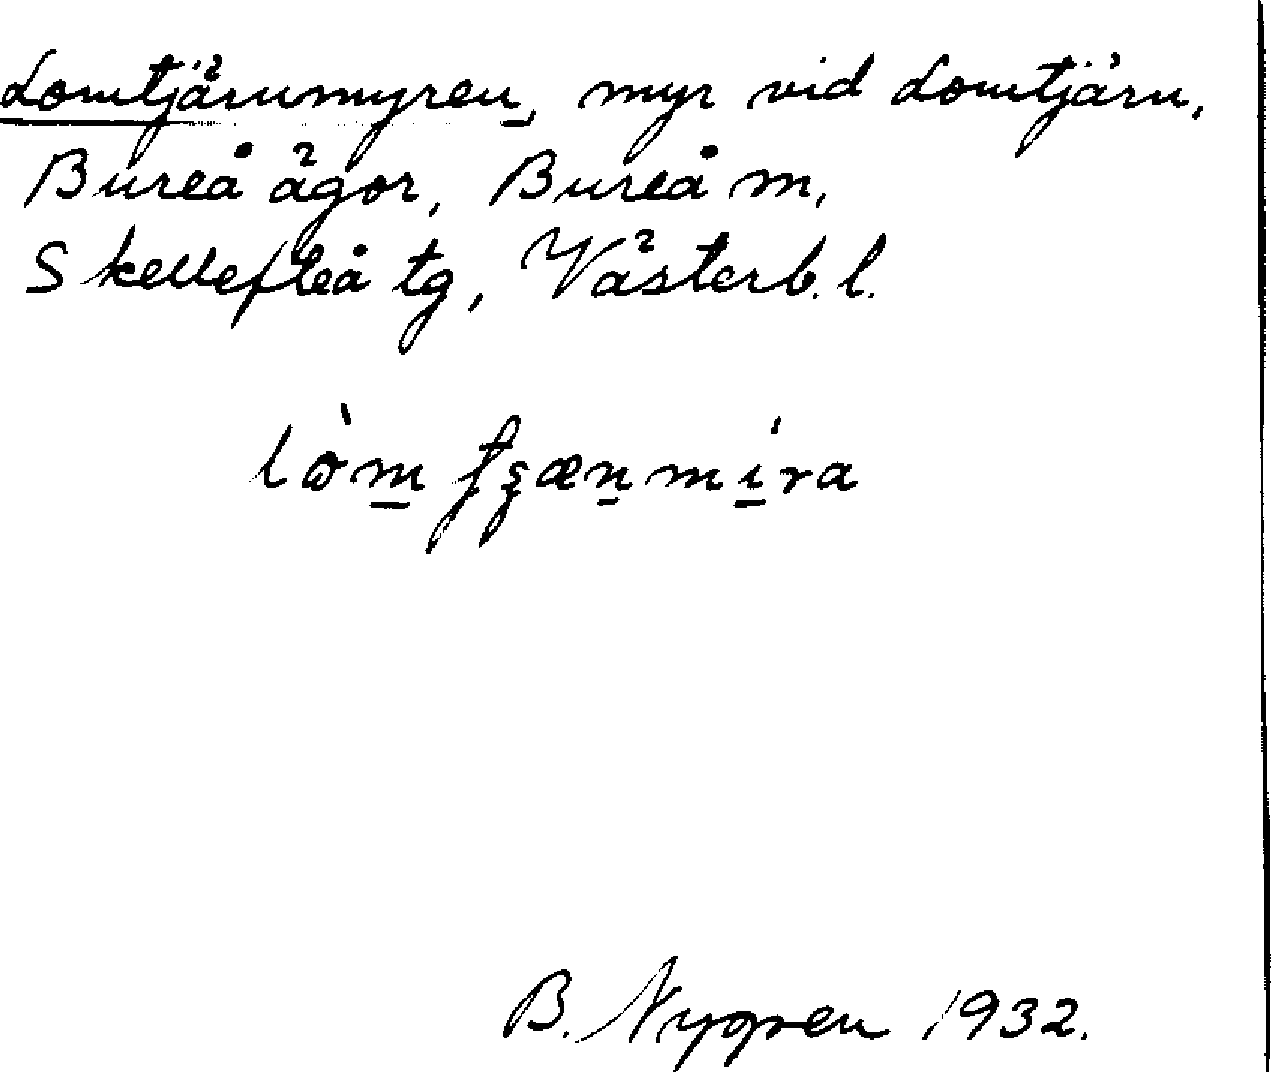 Lomtjärnmyren, myr vid Lomtjärn,
Bureå ägor, Bureå m,
Skellefteå tg, Västerb. l.
B. Nygren 1932.